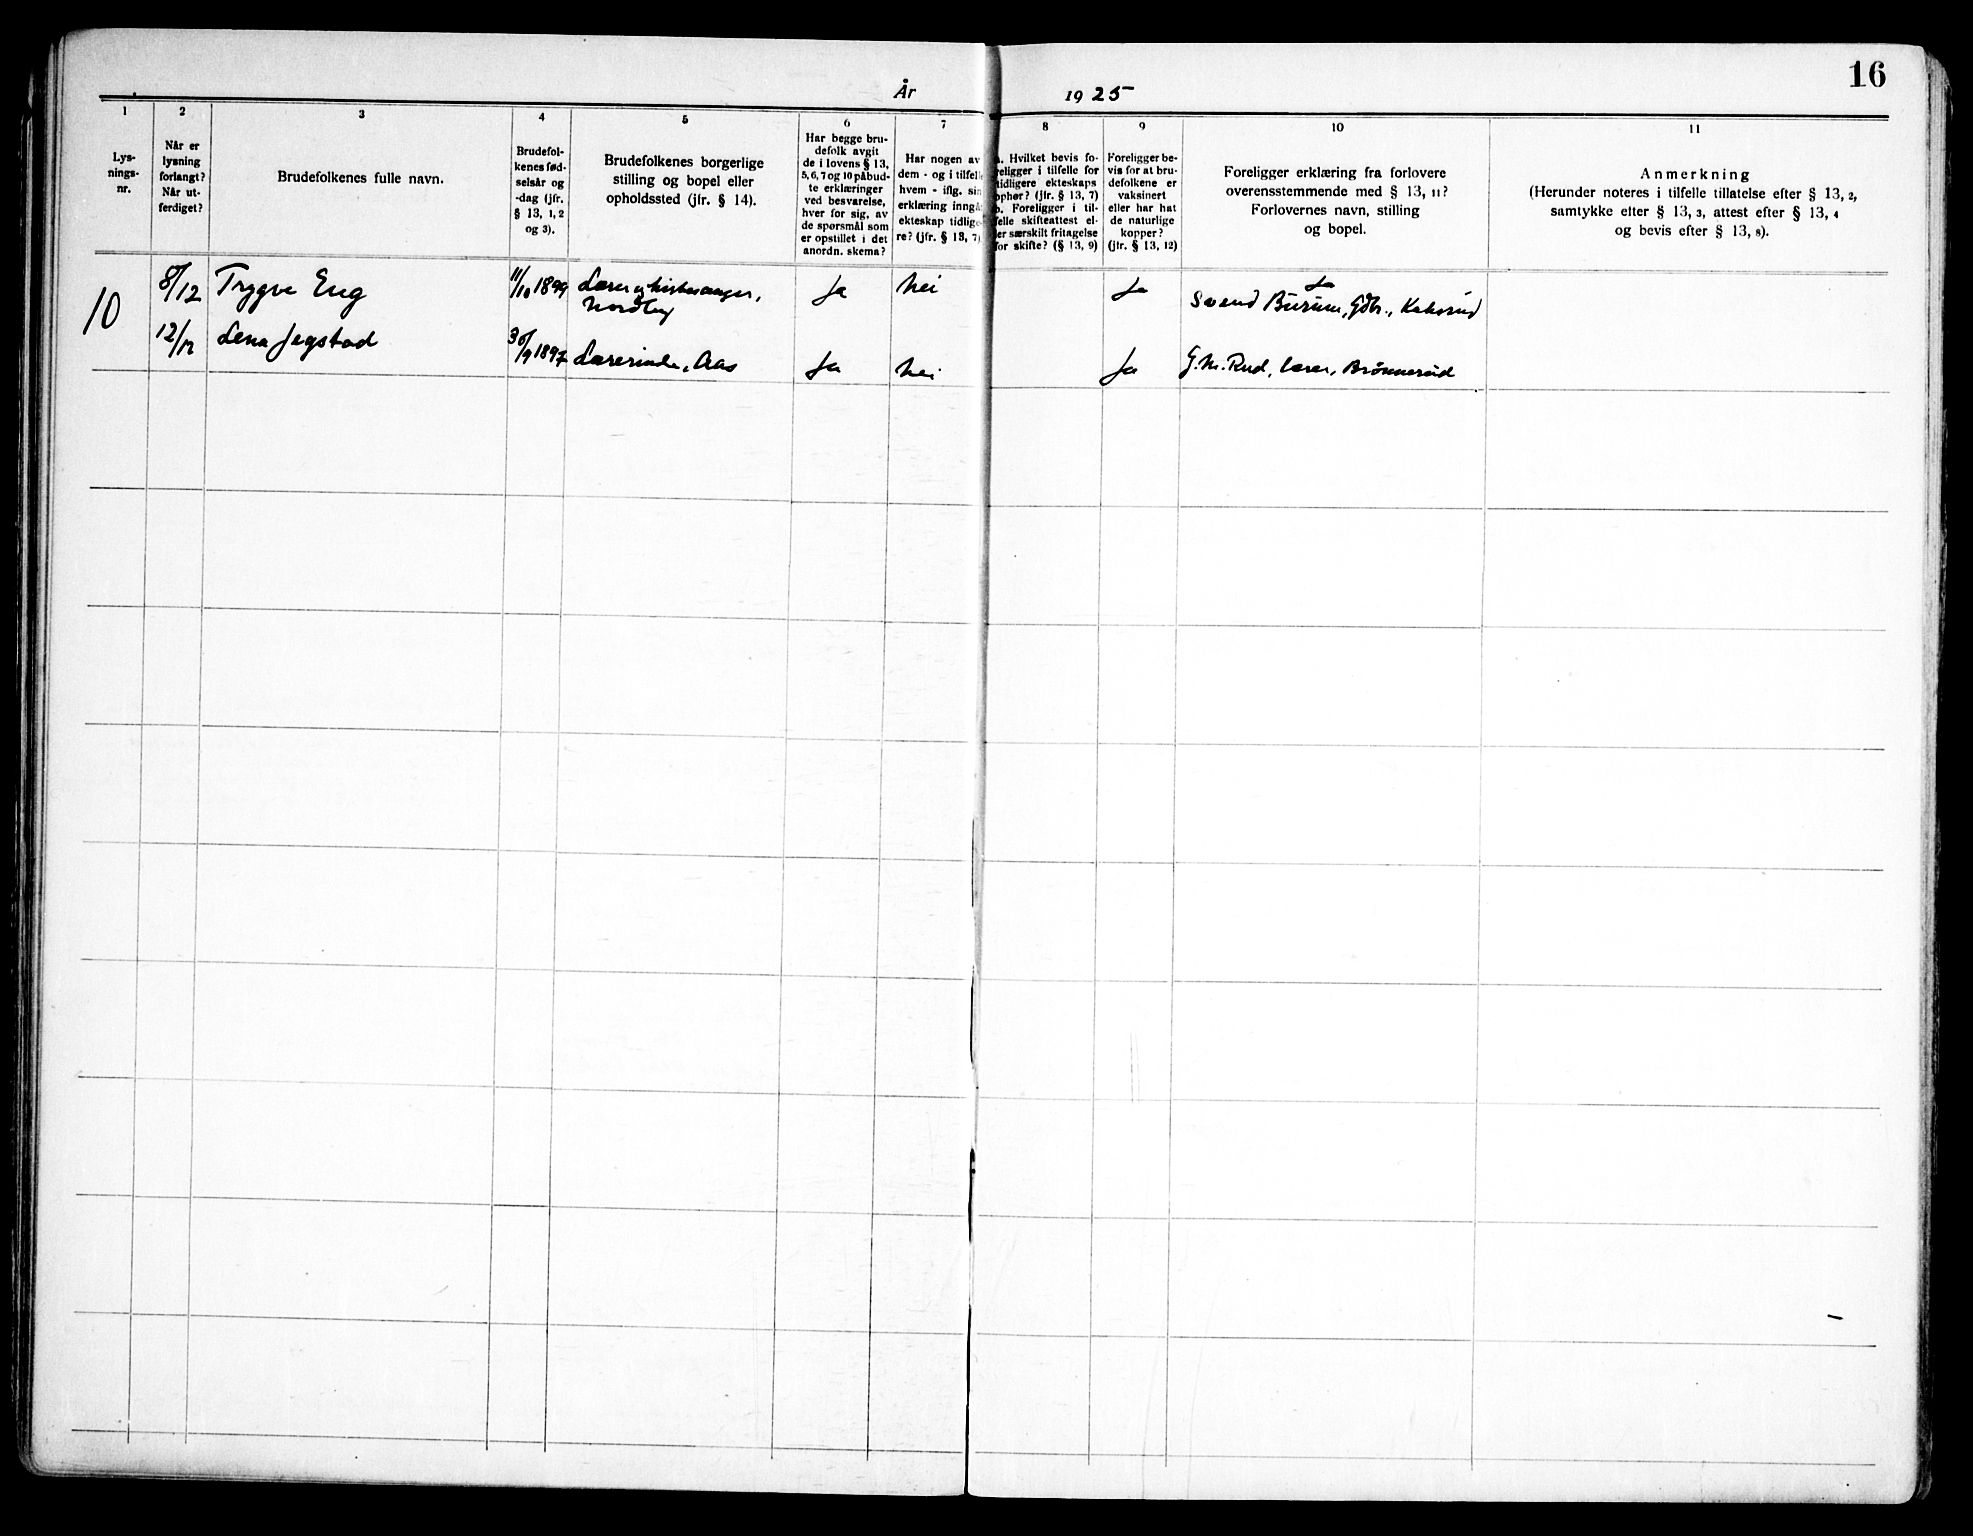 16
År 1925
1 2 3 4 5 6 7 8 9 10 11
Lys-
nings-
nr.
Når er
lysning
forlangt?
Når ut-
ferdiget?
Brudefolkenes fulle navn.
Brudefol-
kenes fød-
selsår og
-dag (jfr.
§ 13, 1, 2
og 3).
Brudefolkenes borgerlige
stilling og bopel eller
opholdssted (jfr. § 14).
Har begge bru-
defolk avgit
de i lovens § 13,
5, 6, 7 og 10 påbud-
te erklæringer
ved besvarelse,
hver for sig, av
de spørsmål som
er opstillet i det
anordn. skema?
Har nogen av
dem - og i tilfelle
hvem - iflg. sin
erklæring inngå
ekteskap tidlige-
re? (jfr. § 13, 7)
a. Hvilket bevis fo-
religger i tilfelle for
tidligere ekteskaps
ophør? (jfr. § 13, 7)
b. Foreligger i til-
felle skifteattest el-
ler særskilt fritagelse
for skifte? (§ 13, 9)
Foreligger be-
vis for at bru-
defolkene er
vaksinert
eller har hat
de naturlige
kopper?
(jfr. § 13, 12)
Foreligger erklæring fra forlovere
overensstemmende med § 13, 11?
Forlovernes navn, stilling
og bopel.
Anmerkning
(Herunder noteres i tilfelle tillatelse efter § 13, 2,
samtykke efter § 13, 3, attest efter § 13, 4
og bevis efter § 13, 8).
10
8/12 Trygve Eng 11/10 1899 Lærer og kirkesanger, Ja Nei Ja Ja
Nordby Svend Burum, Gdbr.,
12/12 Lena Jegstad 30/9 1897 Lærerinde, Aas Ja Nei Ja G. M. Rud, lærer, Brønnerud